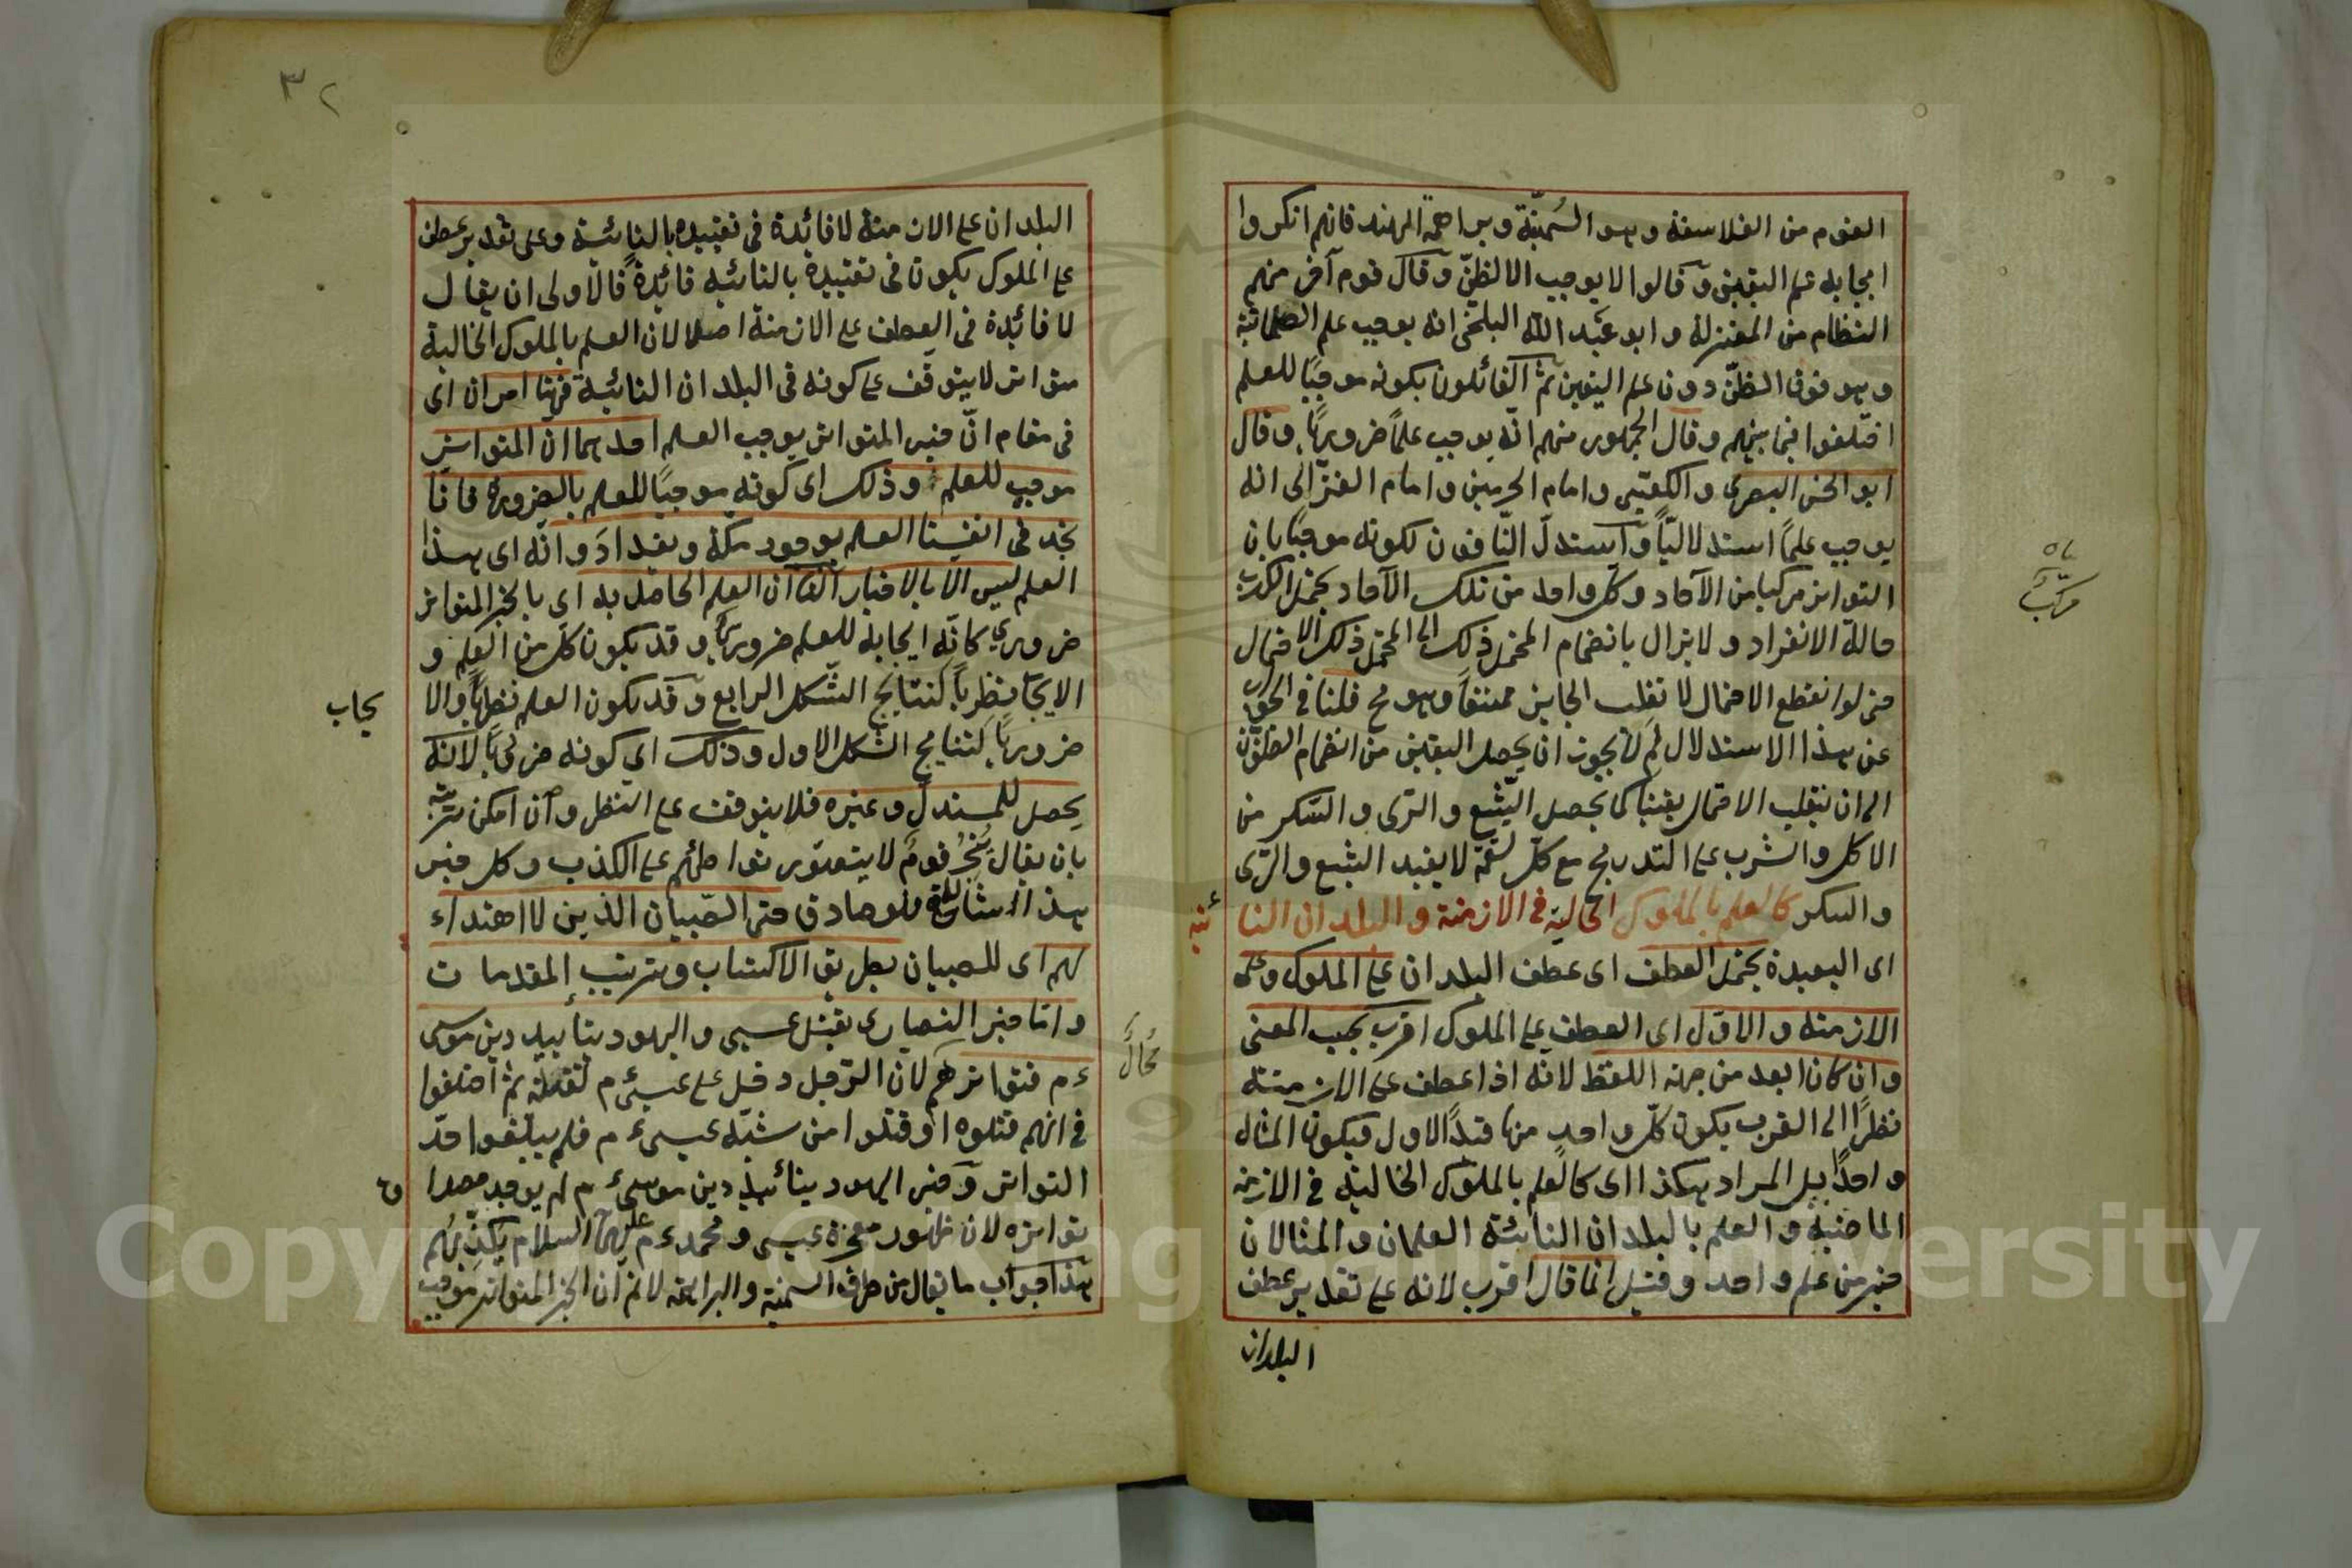 القوم من الفلاسفة وهو السُمنّية وبراهمة الهند فانهم انكروا
ايجابه علم اليقين وقالوا لا يوجب الا الظنّ وقال قوم آخر منهم
النظام من المعتزلة وابو عبد الله البلخى انه يوجب علم الطمانية
وهو فوق الظنّ دون علم اليقين ثمّ القائلون بكونه موجبًا للعلم
اختلفوا فيما بينهم وقال الجمهور منهم انّه يوجب علمًا ضروريًا وقال
ابو الحسن البصرى والكعبى وامام الحرمين وامام الغزّالى انه
يوجب علمًا استدلاليًّا واستدلّ النّافون لكونه موجبًا بان
التواتر مركبا من الآحاد وكل واحد من تلك الآحاد يحتمل الكذب
حالة الانفراد ولا يزال بانضمام المحتمل ذلك الى المحتمل ذلك الاحتمال
حتى لو انقطع الاحتمال لا نقلب الجايز ممتنعًا وهو مح قلنا فى الجواب
عن هذا الاستدلال لم لا يجوز ان يحصل اليقين من انضمام الظنون
الى ان ينقلب الاحتمال يقينا كما يحصل الشّبع والرّى والسّكر من
الاكل والشرب على التدريج مع كلّ لقمة لا يفيد الشبع والرّى
والسكر كالعلم بالملوك الخالية فى الازمنة والبلدان النا
ئية
اى البعيدة يحتمل العطف اى عطف البلدان على الملوك وعلى
الازمنة والاوّل اى العطف على الملوك اقرب بحسب المعنى
وان كان ابعد من جهة اللفظ لانّه اذا عطف على الازمنة
نظرًا الى القرب يكون كلّ واحد منها قيدًا الاول فيكون المثال
واحدًا بل المراد هكذا اى كالعلم بالملوك الخالية فى الازمنة
الماضية والعلم بالبلدان النائية العلمان والمثالان
خير من علم واحد وقيل انما قال اقرب لانه على تقدير عطف
البلدان
مركب
٣٢
البلدان على الازمنة لا فائدة فى تقييده بالنائية وعلى تقدير عطف
على الملوك يكون فى تقييدة بالنائية فائدة فالاولى ان يقال
لا فائدة فى العطف على الازمنة اصلا لان العلم بالملوك الخالية
متواتر لا يتوقّف على كونه فى البلدان النائية فههنا امران اى
فى مقام انّ خبر المتواتر يوجب العلم احدهما ان المتواتر
موجب للعلم وذلك اى كونه موجبًا للعلم بالضرورة فانا
نجد فى انفسنا العلم بوجود مكّة وبغداد وانّه اى هذا
العلم ليس الا بالاخبار الثّانى ان العلم الحاصل به اى بالخبر المتواتر
ضرورى كانّه ايجابه للعلم ضروريًا وقد يكون كل من العلم و
الايجا نظريًا كنتايج الشّكل الرابع وقد يكون العلم نظريًا والا
يجاب
ضروريًا كنتايج الشكل الاول وذلك اى كونه ضروريًا لانّه
يحصل للمستدلّ وغيره فلا يتوقف على النظر وان امكن ترتيبه
بان يقال خبرُ قومٌ لا يتصوّر تواطئهم على الكذب وكل خبر
هذا شانه فهو صادق حتى الصّبيان الذين لا اهتداء
لهم اى للصبيان بطريق الاكتساب وترتيب المقدمات
وامّا خبر النصارى بقتل عيسى واليهود بتأبيد دين موسى
ءم فتواترهم لان الرّجل دخل على عيسى ءم لقتله ثمّ اختلفوا
محالٌ
فى انهم قتلوه او قتلوا من شبّه عيسى ءم فلم يبلغوا حدّ
التواتر وخبر اليهود بتأئبيد دين موسى ءم لم يوجد مصدا
ق
تواتره لان ظهور معجزة عيسى ومحمد ءم عليهما السلام يكذّبهم
هذا جواب ما يقال من طرف السمنية والبراهمة لا نم ان الخبر المتواتر موجب